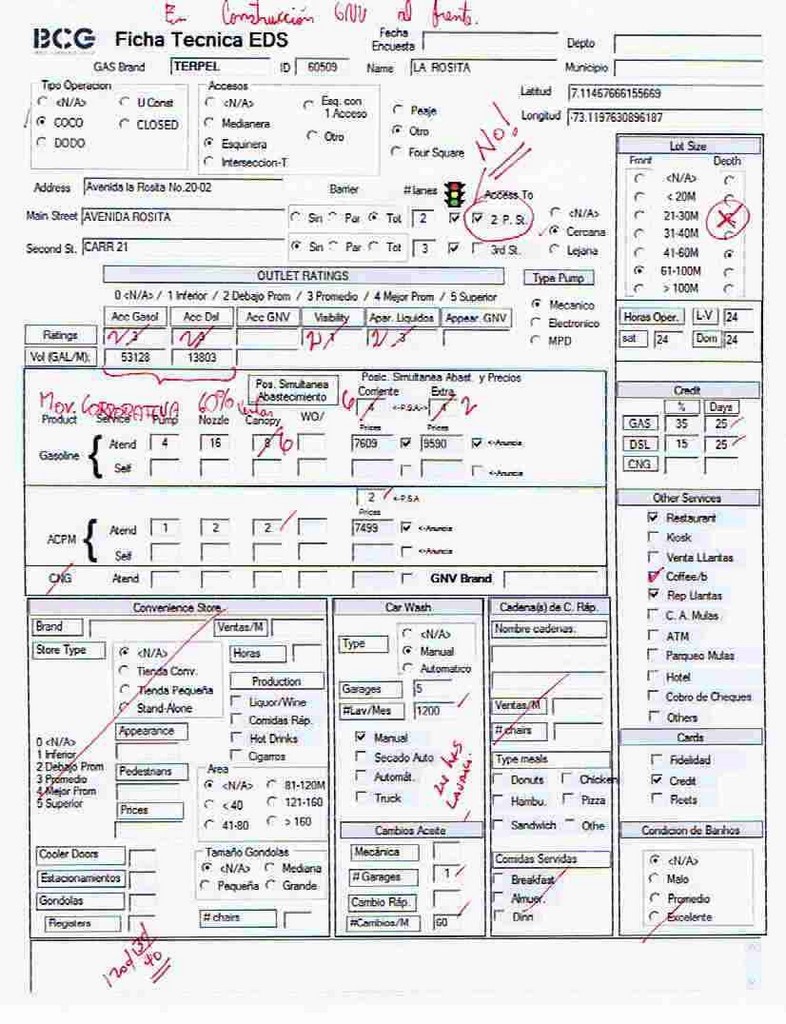 En Construcción GNV al frente.
BCG Ficha Tecnica EDS
Fecha Encuesta
Depto
GAS Brand TERPEL ID 60509 Name LA ROSITA Municipio
Latitud 7.11467666155669
Longitud -73.1197630896187
Tipo Operacion
<N/A> U Const
COCO CLOSED
DODO
Accesos
<N/A> Esq. con 1 Acceso
Medianera
Esquinera Otro
Interseccion-T
Peaje
Otro
Four Square
NO!
Lot Size
Front Depth
<N/A>
< 20M
21-30M
31-40M
41-60M
61-100M
> 100M
Address Avenida la Rosita No.20-02 Barrier #lanes Access To
Main Street AVENIDA ROSITA Sin Par Tot 2 2 P. St.
Second St. CARR 21 Sin Par Tot 3 3rd St.
<N/A>
Cercana
Lejana
OUTLET RATINGS
0 <N/A> / 1 Inferior / 2 Debajo Prom / 3 Promedio / 4 Mejor Prom / 5 Superior
Acc Gasol Acc Dsl Acc GNV Visibility Apar. Liquidos Appear. GNV
Ratings
Vol (GAL/M): 53128 13803
Type Pump
Mecanico
Electronico
MPD
Horas Oper. L-V 24
sat 24 Dom 24
Pos. Simultanea Abastecimiento
Posic. Simultanea Abast. y Precios
Corriente Extra
6 4 <-P.S.A-> 4 2
MOV. CORPORATIVA 60% Ventas
Product Service Pump Nozzle Canopy WO/ Prices Prices
Gasoline Atend 4 16 8 6 7609 9590 <-Anuncia
Self <-Anuncia
2 <-P.S.A
Prices
ACPM Atend 1 2 2 7499 <-Anuncia
Self <-Anuncia
CNG Atend GNV Brand
Credit
% Days
GAS 35 25
DSL 15 25
CNG
Other Services
Restaurant
Kiosk
Venta LLantas
Coffee/b
Rep Llantas
C. A. Mulas
ATM
Parqueo Mulas
Hotel
Cobro de Cheques
Others
Convenience Store
Brand Ventas/M
Store Type <N/A> Horas
Tienda Conv.
Tienda Pequeña
Stand-Alone
Production
Liquor/Wine
Comidas Ráp.
Hot Drinks
Cigarros
0 <N/A>
1 Inferior
2 Debajo Prom
3 Promedio
4 Mejor Prom
5 Superior
Appearance
Pedestrians
Prices
Area
<N/A> 81-120M
< 40 121-160
41-80 > 160
Cooler Doors
Estacionamientos
Gondolas
Registers
Tamaño Gondolas
<N/A> Mediana
Pequeña Grande
# chairs
Car Wash
Type <N/A>
Manual
Automatico
Garages 5
#Lav/Mes 1200
Manual
Secado Auto
Automát.
Truck
24 hrs
Cambios Aceite
Mecánica
# Garages 1
Cambio Ráp.
#Cambios/M 60
Cadena(s) de C. Ráp.
Nombre cadenas:
Ventas/M
# chairs
Type meals
Donuts Chicken
Hambu. Pizza
Sandwich Othe
Comidas Servidas
Breakfast
Almuer.
Dinn
Cards
Fidelidad
Credit
Fleets
Condicion de Banhos
<N/A>
Malo
Promedio
Excelente